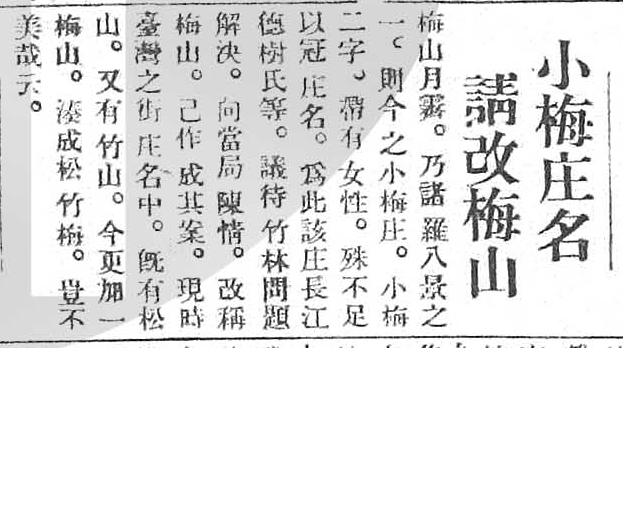 小梅庄名
請改梅山
梅山月霽。乃諸羅八景之
一。則今之小梅庄。小梅
二字。帶有女性。殊不足
以冠庄名。爲此該庄長江
德樹氏等。議待竹林問題
解决。向當局陳情。改稱
梅山。己作成其案。現時
臺灣之街庄名中。旣有松
山。又有竹山。今更加一
梅山。湊成松竹梅。豈不
美哉云。